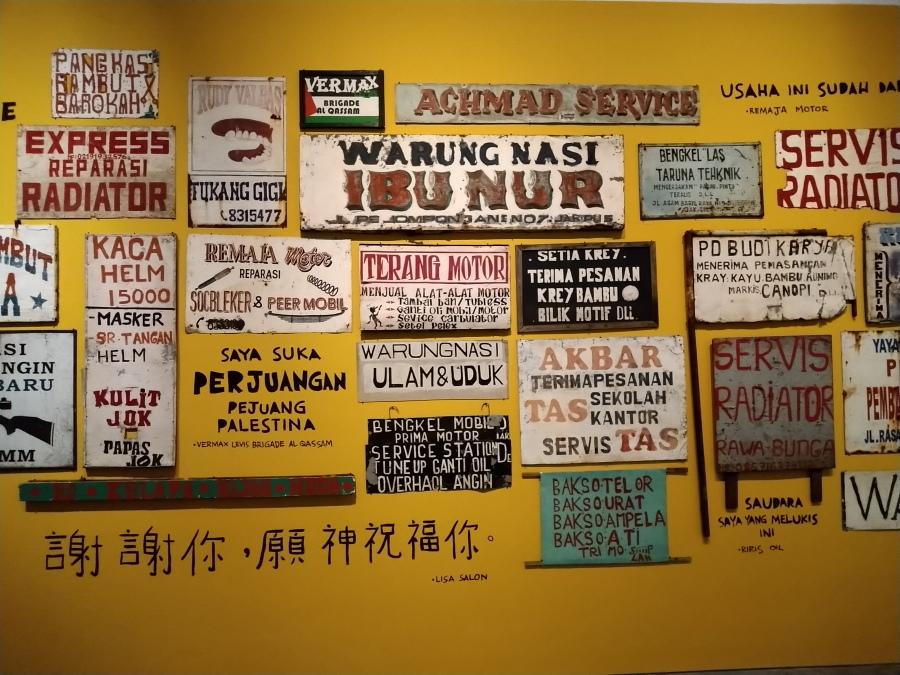 PANGKAS
RAMBUT
BAROKAH
RUDY VALBAS
TUKANG GIGI
8315477
VERMAX
BRIGADE
AL QASSAM
ACHMAD SERVICE
USAHA INI SUDAH
-REMAJA MOTOR
E
EXPRESS
REPARASI
RADIATOR
WARUNG NASI
IBU NUR
BENGKEL LAS
TARUNA TEHKNIK
SERVIS
RADIATO
MBUT
A
KACA
HELM
15000
MASKER
SR-TANGAN
HELM
KULIT
JOK
PAPAS
JOK
REMAJA Motor
REPARASI
SOCBLEKER & PEER MOBIL
TERANG MOTOR
MENJUAL ALAT-ALAT MOTOR
Tambal ban/Tubless
Ganti oli Mobil/Motor
Service carburator
Setel Pelex
SETIA KREY
TERIMA PESANAN
KREY BAMBU
BILIK MOTIF DLL
PD BUDI KARYA
MENERIMA PEMASANGAN
KRAY. KAYU. BAMBU. AUNING
MARKIS CANOPI DLL
SI
NGIN
BARU
MM
SAYA SUKA
PERJUANGAN
PEJUANG
PALESTINA
-VERMAX LEVIS BRIGADE AL QASSAM
WARUNGNASI
ULAM&UDUK
AKBAR
TERIMA PESANAN
TAS SEKOLAH
KANTOR
SERVIS TAS
SERVIS
RADIATOR
RAWA-BUNGA
YAYA
P
PEMB
JL.RASA
BENGKEL MOBIL
PRIMA MOTOR
SERVICE STATION
TUNE UP GANTI OIL
OVERHAOL ANGIN
BAKSO-TELOR
BAKSO-URAT
BAKSO-AMPELA
BAKSO-ATI
TRIMO
SAUDARA
SAYA YANG MELUKIS
INI
-RIRIS OIL
WA
謝謝你，願神祝福你。
-LISA SALON